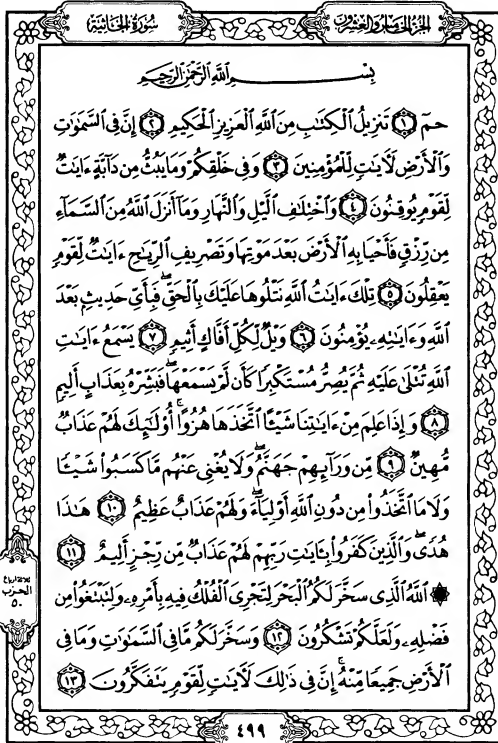 سُورَةُ الجَاثِيَةِ
الجُزْءُ الخَامِسُ وَالعِشْرُونَ
بِسْمِ اللَّهِ الرَّحْمَٰنِ الرَّحِيمِ
حمٓ ۝١ تَنزِيلُ الْكِتَابِ مِنَ اللَّهِ الْعَزِيزِ الْحَكِيمِ ۝٢ إِنَّ فِي السَّمَٰوَٰتِ
وَالْأَرْضِ لَآيَٰتٍ لِّلْمُؤْمِنِينَ ۝٣ وَفِي خَلْقِكُمْ وَمَا يَبُثُّ مِن دَابَّةٍ ءَايَٰتٌ
لِّقَوْمٍ يُوقِنُونَ ۝٤ وَاخْتِلَٰفِ الَّيْلِ وَالنَّهَارِ وَمَا أَنزَلَ اللَّهُ مِنَ السَّمَاءِ
مِن رِّزْقٍ فَأَحْيَا بِهِ الْأَرْضَ بَعْدَ مَوْتِهَا وَتَصْرِيفِ الرِّيَٰحِ ءَايَٰتٌ لِّقَوْمٍ
يَعْقِلُونَ ۝٥ تِلْكَ ءَايَٰتُ اللَّهِ نَتْلُوهَا عَلَيْكَ بِالْحَقِّ ۖ فَبِأَيِّ حَدِيثٍ بَعْدَ
اللَّهِ وَءَايَٰتِهِ يُؤْمِنُونَ ۝٦ وَيْلٌ لِّكُلِّ أَفَّاكٍ أَثِيمٍ ۝٧ يَسْمَعُ ءَايَٰتِ
اللَّهِ تُتْلَىٰ عَلَيْهِ ثُمَّ يُصِرُّ مُسْتَكْبِرًا كَأَن لَّمْ يَسْمَعْهَا ۖ فَبَشِّرْهُ بِعَذَابٍ أَلِيمٍ
۝٨ وَإِذَا عَلِمَ مِنْ ءَايَٰتِنَا شَيْـًٔا اتَّخَذَهَا هُزُوًا ۚ أُولَٰئِكَ لَهُمْ عَذَابٌ
مُّهِينٌ ۝٩ مِّن وَرَائِهِمْ جَهَنَّمُ ۖ وَلَا يُغْنِي عَنْهُم مَّا كَسَبُوا شَيْـًٔا
وَلَا مَا اتَّخَذُوا مِن دُونِ اللَّهِ أَوْلِيَاءَ ۖ وَلَهُمْ عَذَابٌ عَظِيمٌ ۝١٠ هَٰذَا
هُدًى ۖ وَالَّذِينَ كَفَرُوا بِـَٔايَٰتِ رَبِّهِمْ لَهُمْ عَذَابٌ مِّن رِّجْزٍ أَلِيمٌ ۝١١
۞ اللَّهُ الَّذِي سَخَّرَ لَكُمُ الْبَحْرَ لِتَجْرِيَ الْفُلْكُ فِيهِ بِأَمْرِهِ وَلِتَبْتَغُوا مِن
فَضْلِهِ وَلَعَلَّكُمْ تَشْكُرُونَ ۝١٢ وَسَخَّرَ لَكُم مَّا فِي السَّمَٰوَٰتِ وَمَا فِي
الْأَرْضِ جَمِيعًا مِّنْهُ ۚ إِنَّ فِي ذَٰلِكَ لَآيَٰتٍ لِّقَوْمٍ يَتَفَكَّرُونَ ۝١٣
الحزب
٥٠
٤٩٩